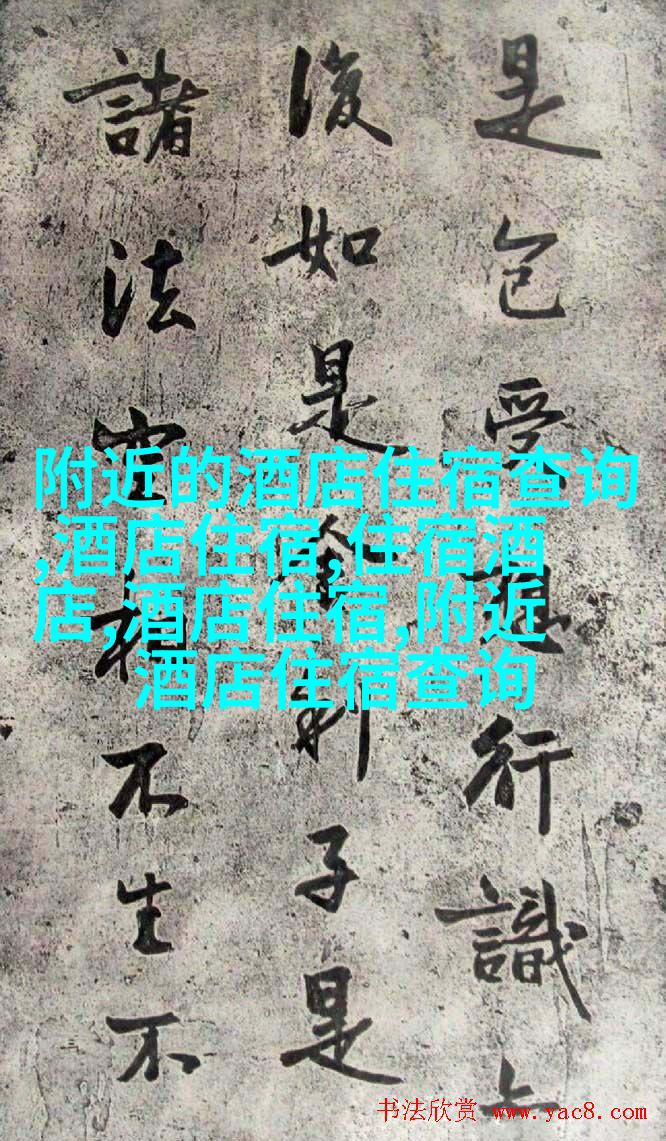 是色受想行識
復如是舍利子是
諸法空相不生不
附近的酒店住宿查询
,酒店住宿,住宿酒
店,酒店住宿,附近
酒店住宿查询
书法欣赏 www.yac8.com